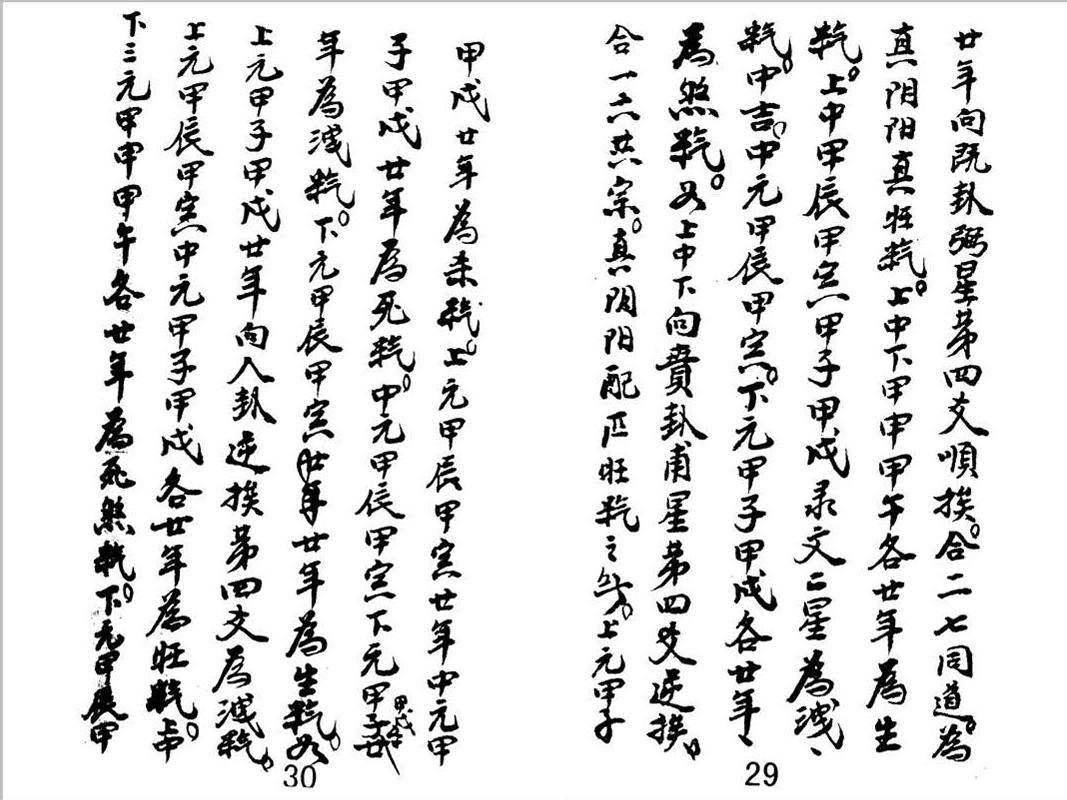 廿年向既卦弼星第四爻順挨。合二七同道。為
真阴阳真旺氣。上中下甲申甲午各廿年為生
氣。上中甲辰甲寅甲子甲戌录文二星為洩、
氣。中吉。中元甲辰甲寅。下元甲子甲戌各廿年、
為煞氣。如上中下向賁卦甫星第四爻逆挨。
合一六共宗。真阴阳配匹旺氣之外。上元甲子
29
甲戌廿年為未氣。上元甲辰甲寅廿年中元甲
子甲戌廿年為死氣。中元甲辰甲寅下元甲子甲戌廿
年為洩氣。下元甲辰甲寅廿年為生氣。如
上元甲子甲戌廿年向入卦逆挨第四爻為洩氣。
上元甲辰甲寅中元甲子甲戌各廿年為旺氣。中
下三元甲申甲午各廿年為死煞氣。下元甲辰甲
30